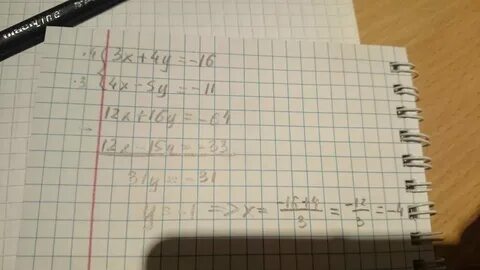 ·4 { 3x+4y=-16
·3 { 4x-5y=-11
12x+16y=-64
-
12x-15y=-33
31y=-31
y=-1 => x= \frac{-16+4}{3} = \frac{-12}{3} = -4